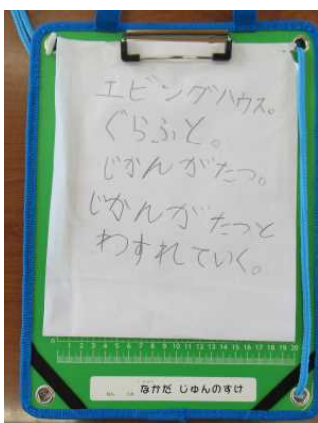 エビングハウス。
ぐらふと。
じかんがたつ。
じかんがたつと
わすれていく。
0 1 2 3 4 5 6 7 8 9 10 11 12 13 14 15 16 17 18 19 20
なかだ じゅんのすけ